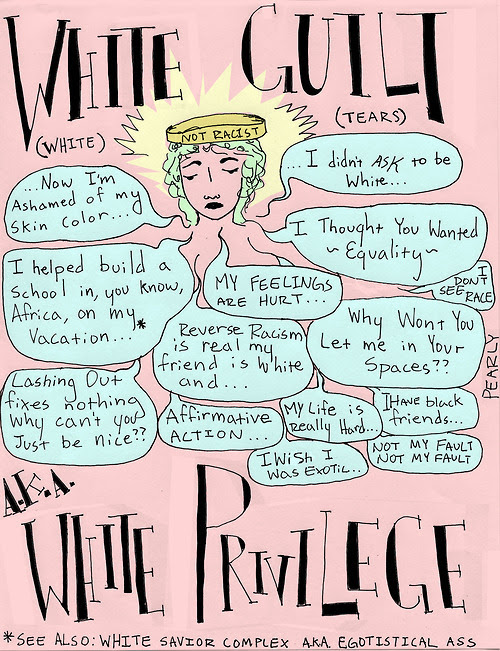 WHITE GUILT
(WHITE)
(TEARS)
NOT RACIST
...Now I'm
Ashamed of my
Skin Color...
...I didn't ASK to be
White...
I Thought You Wanted
~Equality~
I
DON'T
SEE RACE
I helped build a
School in, you know,
Africa, on my
Vacation...*
MY FEELINGS
ARE HURT...
Reverse Racism
is real my
friend is White
and...
Why Wont You
Let me in Your
Spaces??
PEARLY
Lashing Out
fixes nothing
Why can't you
Just be nice??
Affirmative
ACTION...
My Life is
Really Hard...
I HAVE black
friends...
I Wish I
Was EXOTIC..
NOT MY FAULT
NOT MY FAULT
A.K.A.
WHITE PRIVILEGE
*SEE ALSO: WHITE SAVIOR COMPLEX A.K.A. EGOTISTICAL ASS